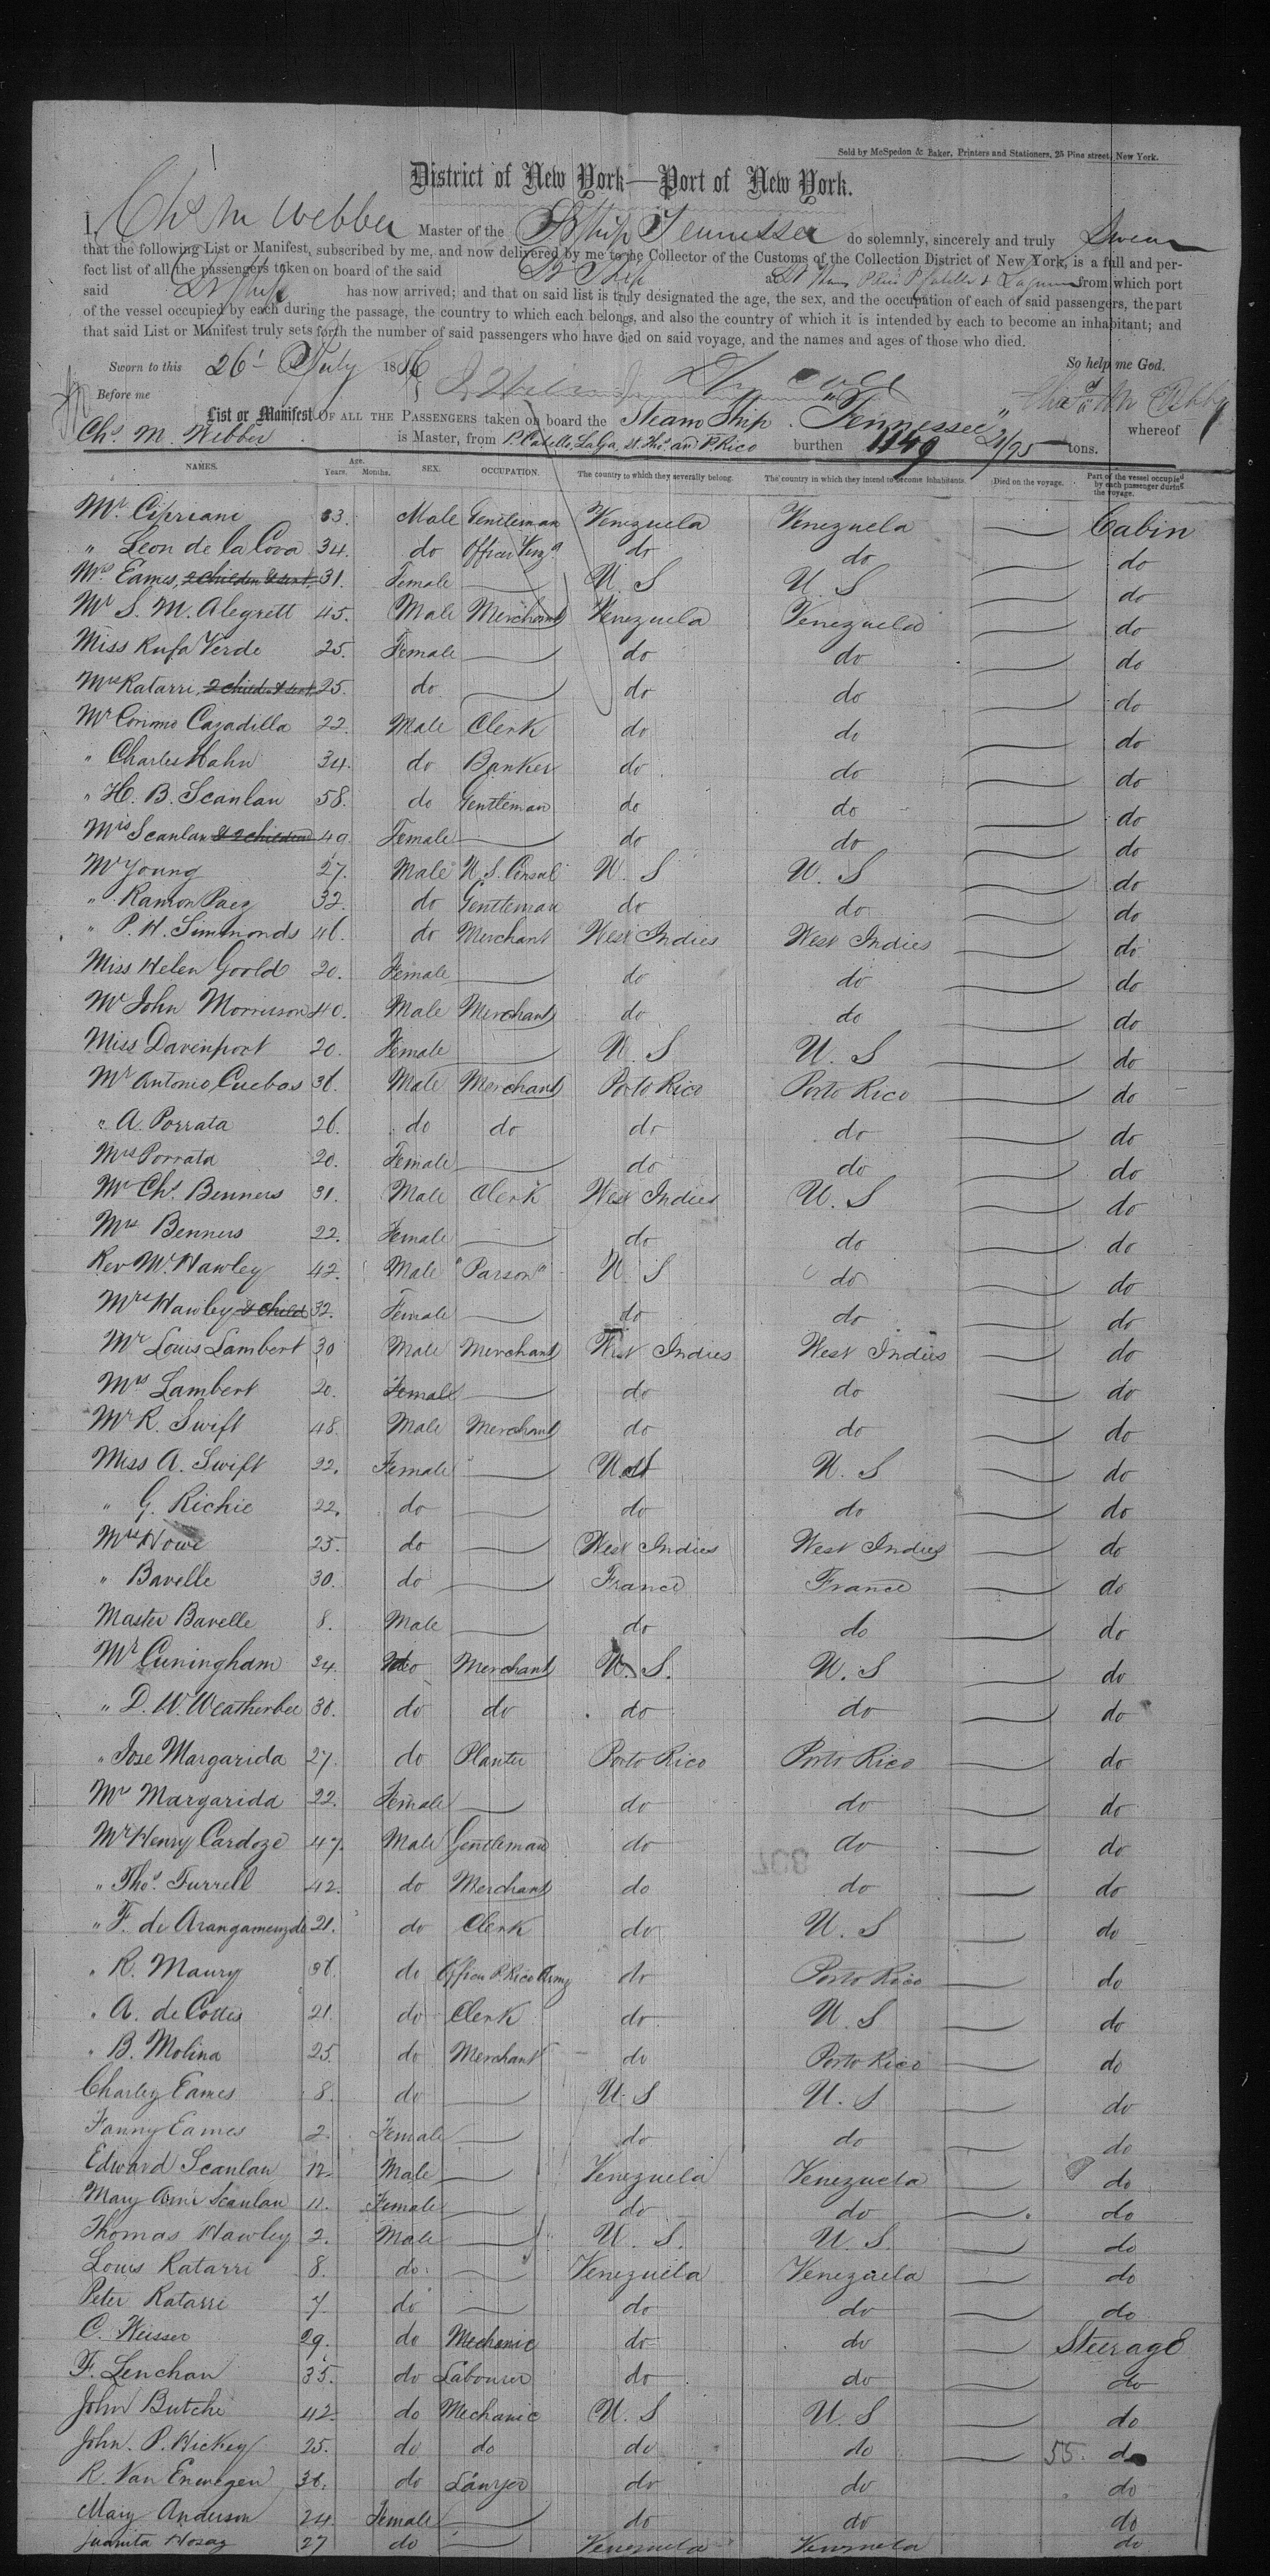 Sold by McSpedon & Baker, Printers and Stationers, 25 Pine street, New York.
District of New York—Port of New York.
I, Chs M Webber Master of the Stship Tennessee do solemnly, sincerely and truly Swear
that the following List or Manifest, subscribed by me, and now delivered by me to the Collector of the Customs of the Collection District of New York, is a full and per-
fect list of all the passengers taken on board of the said St Ship at St Thos P Rico P Cabello & Laguira from which port
said St Ship has now arrived; and that on said list is truly designated the age, the sex, and the occupation of each of said passengers, the part
of the vessel occupied by each during the passage, the country to which each belongs, and also the country of which it is intended by each to become an inhabitant; and
that said List or Manifest truly sets forth the number of said passengers who have died on said voyage, and the names and ages of those who died.
Sworn to this 26 July 1856 So help me God.
Before me
List or Manifest OF ALL THE PASSENGERS taken on board the Steam Ship Tennessee whereof
Chs. M. Webber is Master, from P. Cabello, LaGa, St. Ths. and P. Rico burthen 1149 21/95 tons.
NAMES. Age. Years. Months. SEX. OCCUPATION. The country to which they severally belong. The country in which they intend to become inhabitants. Died on the voyage. Part of the vessel occupied by each passenger during the voyage.
Mr. Cipriani 33. Male Gentleman Venezuela Venezuela Cabin
" Leon de la Cova 34. do Officer Venza do do do
Mrs Eames, 2 children & servt 31. Female U S U. S do
Mr S. M. Alegrett 45. Male Merchant Venezuela Venezuela do
Miss Rufa Verde 25. Female do do do
Mrs Ratarri, 2 child. & servt 25. do do do do
Mr Corinno Cazadilla 22. Male Clerk do do do
" Charles Hahn 34. do Banker do do do
" H. B. Scanlan 58. do Gentleman do do do
Mrs Scanlan & 2 children 49 Female do do do
Mr Young 27. Male U. S. Consul U. S U. S do
" Ramon Paez 32. do Gentleman do do do
" P. H. Simmonds 46. do Merchant West Indies West Indies do
Miss Helen Goold 20. Female do do do
Mr John Morrison 40. Male Merchant do do do
Miss Davenport 20. Female U. S U. S do
Mr Antonio Cuebas 36. Male Merchant Porto Rico Porto Rico do
" A. Porrata 26. do do do do do
Mrs Porrata 20. Female do do do
Mr Chs. Benners 31. Male Clerk West Indies U. S do
Mrs Benners 22. Female do do do
Rev Mr. Hawley 42. Male "Parson" U. S do do
Mrs Hawley & child 32. Female do do do
Mr Louis Lambert 30 Male Merchant West Indies West Indies do
Mrs Lambert 20. Female do do do
Mr R. Swift 48. Male Merchant do do do
Miss A. Swift 22. Female U. S U. S do
" G. Richie 22. do do do do
Mrs Howe 25. do West Indies West Indies do
" Bavelle 30. do France France do
Master Bavelle 8. Male do do do
Mr Cuningham 34. do Merchant U. S. U. S do
" D. W. Weatherbee 30. do do do do do
" Jose Margarida 27. do Planter Porto Rico Porto Rico do
Mrs Margarida 22. Female do do do
Mr Henry Cardoze 47. Male Gentleman do do do
" Thos. Furrell 42. do Merchant do do do
" F. de Arangamenzde 21. do Clerk do U. S do
" R. Maury 36. do Officer P. Rico Army do Porto Rico do
" A. de Cottes 21 do Clerk do U. S do
" B. Molina 25. do Merchant do Porto Rico do
Charley Eames 8. do U. S U. S do
Fanny Eames 2. Female do do do
Edward Scanlan 12. Male Venezuela Venezuela do
Mary Ann Scanlan 11. Female do do do
Thomas Hawley 2. Male U. S. U. S. do
Louis Ratarri 8. do Venezuela Venezuela do
Peter Ratarri 7 do do do do
C. Weisser 29. do Mechanic do do Steerage
F. Lenchan 35. do Labourer do do do
John Butche 42. do Mechanic U. S U. S do
John. P. Hickey 25. do do do do 55. do
R. Van Enwegen 36. do Lawyer do do do
Mary Anderson 24. Female do do do
Juanita Rosaz 27 do Venezuela Venezuela do